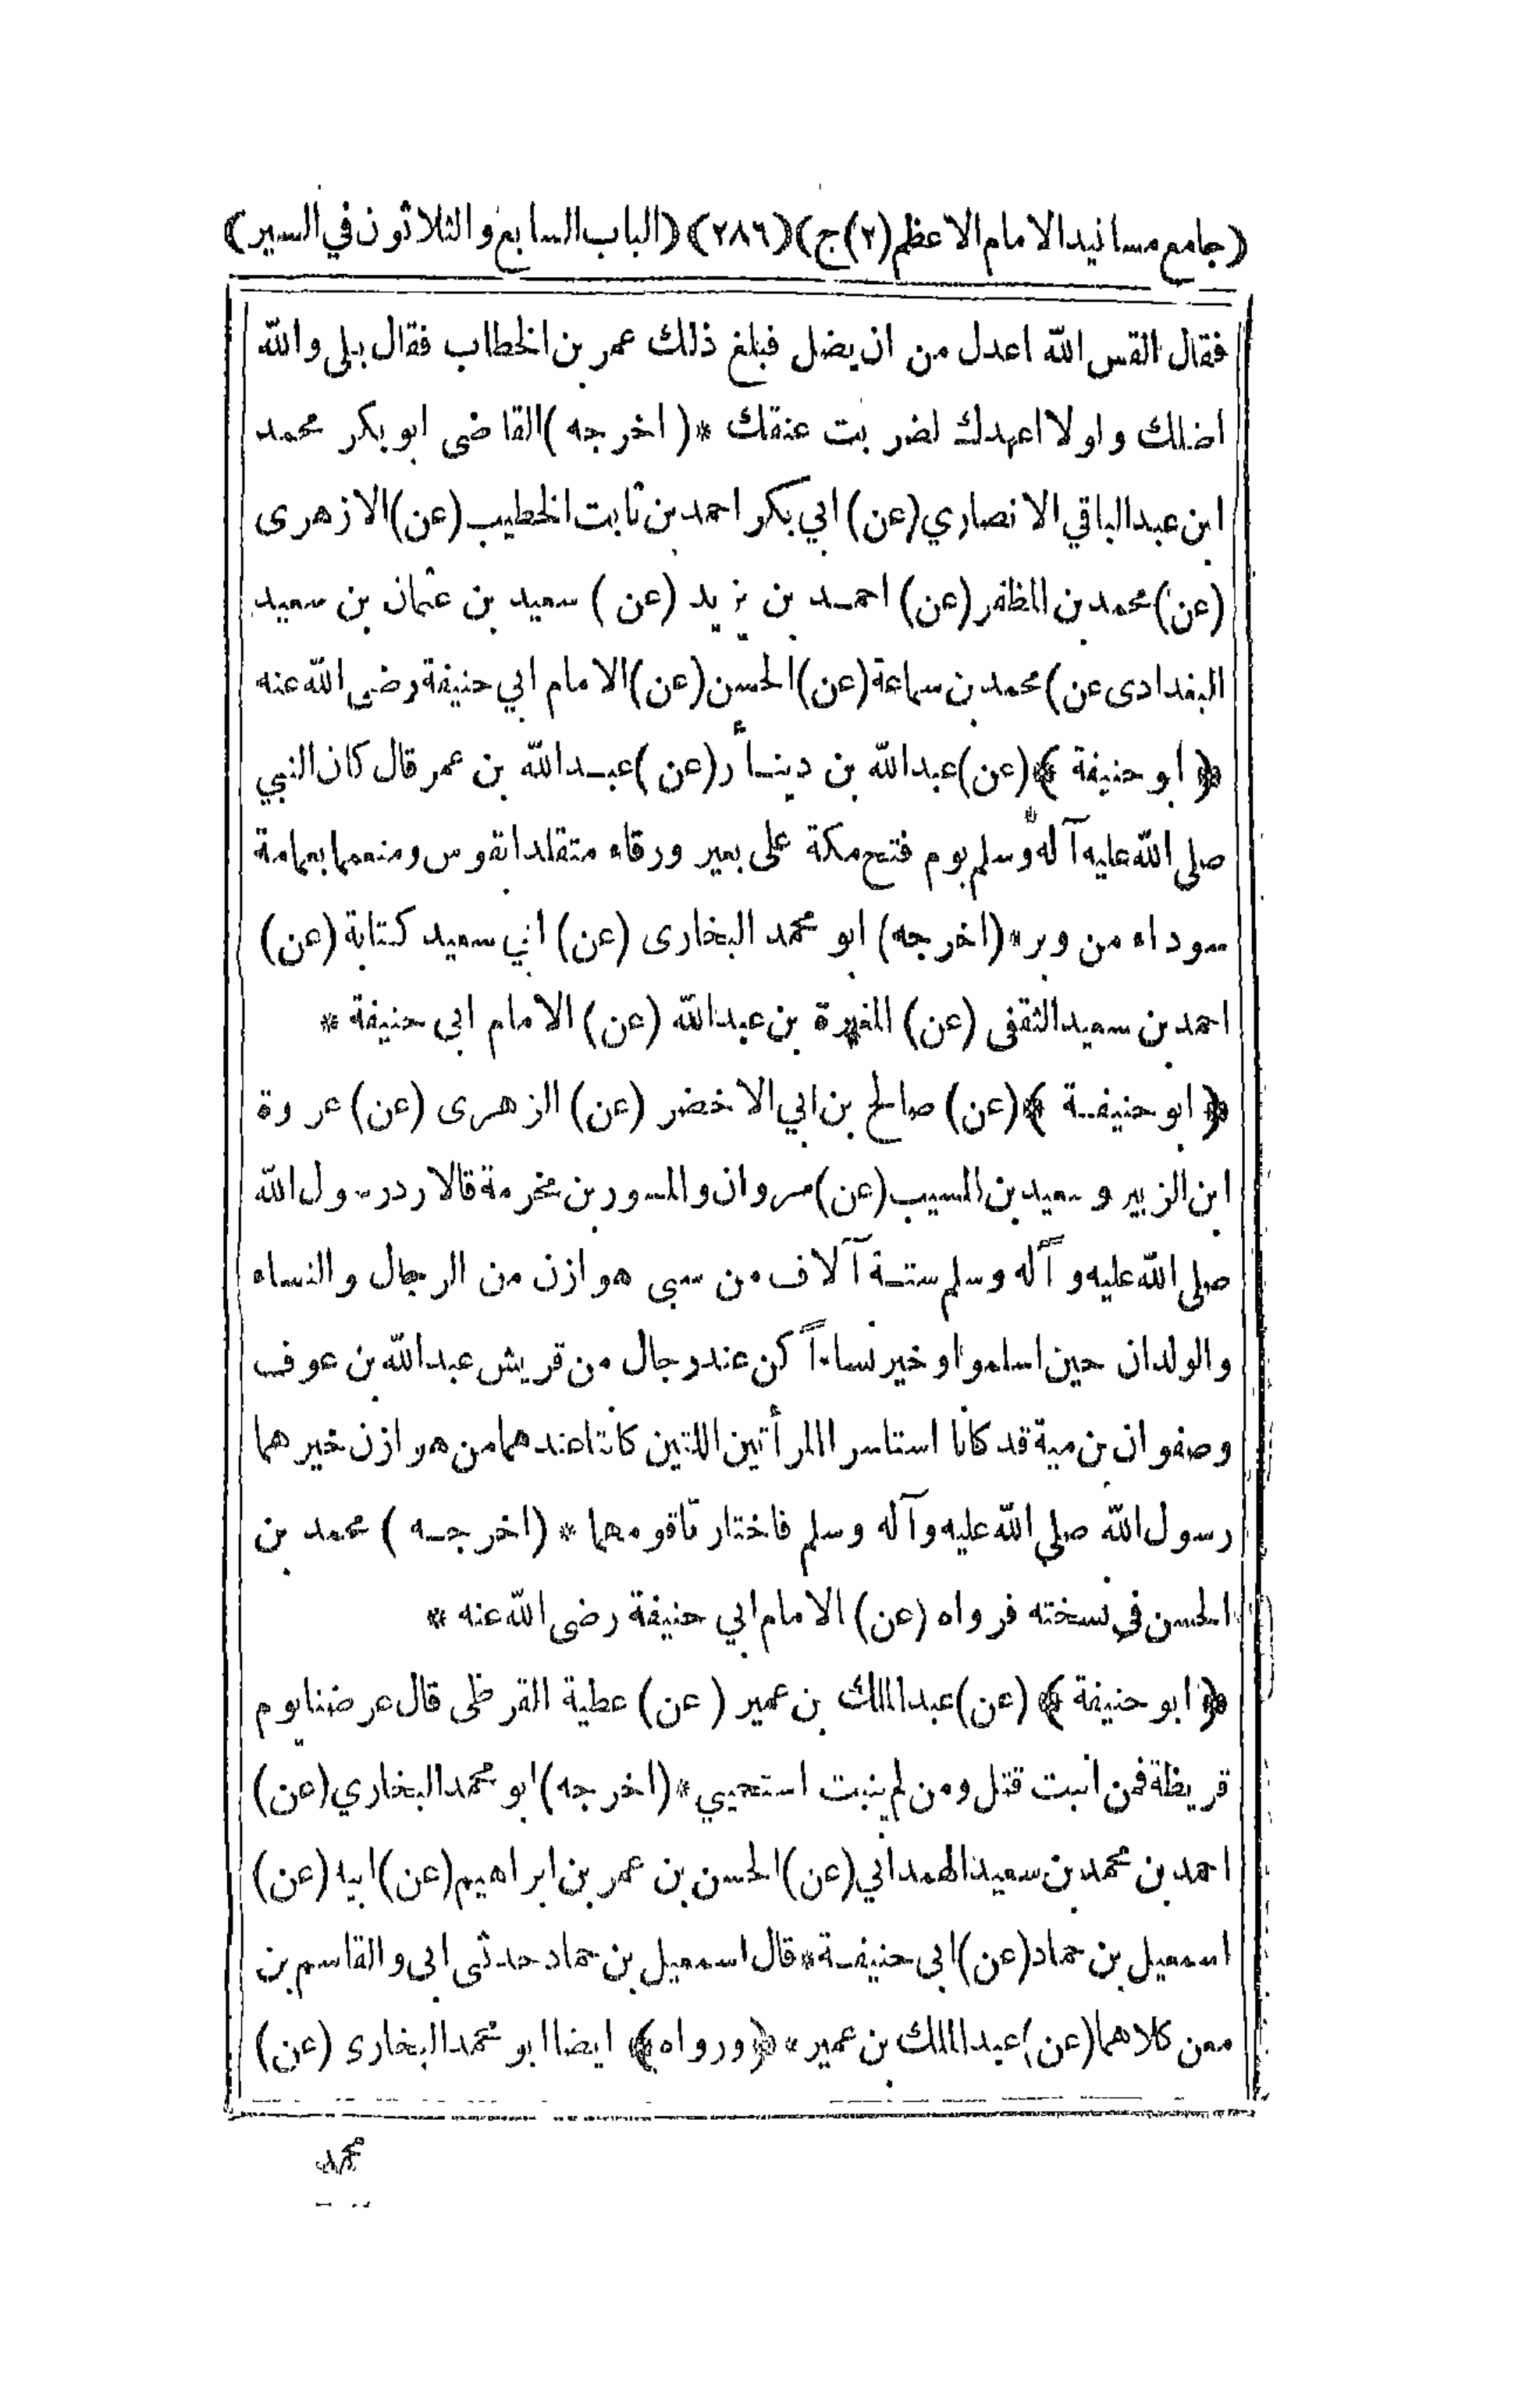 (جامع مسانيد الامام الاعظم (٢) ج) (٢٨٦) (الباب السابع والثلاثون في السير)
فقال القس الله اعدل من ان يضل فبلغ ذلك عمر بن الخطاب فقال بلى والله
اضلك ولولا اعهدك لضربت عنقك * (اخرجه) القاضى ابو بكر محمد
ابن عبد الباقي الانصاري (عن) ابي بكر احمد بن ثابت الخطيب (عن) الازهرى
(عن) محمد بن المظفر (عن) احمد بن يزيد (عن) سعيد بن عثمان بن سعيد
البغدادى عن) محمد بن سماعة (عن) الحسن (عن) الامام ابي حنيفة رضى الله عنه
﴿ ابو حنيفة ﴾ (عن) عبد الله بن دينار (عن) عبد الله بن عمر قال كان النبي
صلى الله عليه آله وسلم يوم فتح مكة على بعير ورقاء متقلدا بقوس ومتعمما بعمامة
سوداء من وبر * (اخرجه) ابو محمد البخارى (عن) ابي سعيد كتابة (عن)
احمد بن سعيد الثقفى (عن) المغيرة بن عبد الله (عن) الامام ابى حنيفة *
﴿ ابو حنيفة ﴾ (عن) صالح بن ابي الاخضر (عن) الزهرى (عن) عروة
ابن الزبير وسعيد بن المسيب (عن) مروان والمسور بن مخرمة قالا رد رسول الله
صلى الله عليه وآله وسلم ستة آلاف من سبى هوازن من الرجال والنساء
والولدان حين اسلموا وخير نساءاً كن عند رجال من قريش عبد الله بن عوف
وصفوان بن مية قد كانا استاسرا المرأتين اللتين كانتا عندهما من هوازن خيرهما
رسول الله صلى الله عليه وآله وسلم فاختارتا قومهما * (اخرجه) محمد بن
الحسن في نسخته فرواه (عن) الامام ابي حنيفة رضى الله عنه *
﴿ ابو حنيفة ﴾ (عن) عبد الملك بن عمير (عن) عطية القرظى قال عرضنا يوم
قريظة فمن انبت قتل ومن لم ينبت استحيي * (اخرجه) ابو محمد البخاري (عن)
احمد بن محمد بن سعيد الهمداني (عن) الحسن بن عمر بن ابراهيم (عن) ابيه (عن)
اسمعيل بن حماد (عن) ابى حنيفة * قال اسمعيل بن حماد حدثنى ابى والقاسم بن
معن كلاهما (عن) عبد الملك بن عمير * ﴿ ورواه ﴾ ايضا ابو محمد البخارى (عن)
محمد